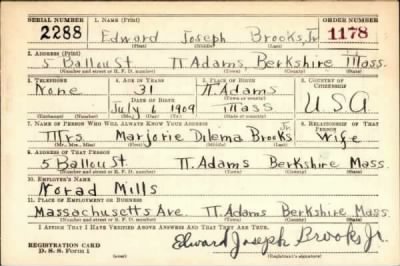 SERIAL NUMBER 1. NAME (Print) ORDER NUMBER
2288 Edward Joseph Brooks, Jr. 1178
(First) (Middle) (Last)
2. ADDRESS (Print)
5 Ballou St. N. Adams, Berkshire Mass.
(Number and street or R. F. D. number) (Town) (County) (State)
3. TELEPHONE 4. AGE IN YEARS 5. PLACE OF BIRTH 6. COUNTRY OF CITIZENSHIP
None 31 N. Adams
DATE OF BIRTH (Town or county)
July 1 1909 Mass U.S.A
(Exchange) (Number) (Mo.) (Day) (Yr.) (State or country)
7. NAME OF PERSON WHO WILL ALWAYS KNOW YOUR ADDRESS 8. RELATIONSHIP OF THAT PERSON
Mrs. Marjorie Dilema Brooks Jr. Wife
(Mr., Mrs., Miss) (First) (Middle) (Last)
9. ADDRESS OF THAT PERSON
5 Ballou St. N. Adams Berkshire Mass.
(Number and street or R. F. D. number) (Town) (County) (State)
10. EMPLOYER'S NAME
Norad Mills
11. PLACE OF EMPLOYMENT OR BUSINESS
Massachusetts Ave. N. Adams Berkshire Mass.
(Number and street or R. F. D. number) (Town) (County) (State)
I AFFIRM THAT I HAVE VERIFIED ABOVE ANSWERS AND THAT THEY ARE TRUE.
REGISTRATION CARD Edward Joseph Brooks Jr.
D. S. S. Form 1 (Registrant's signature)